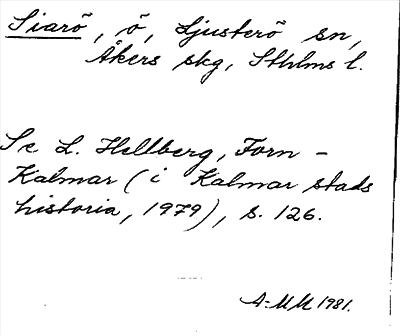 Siarö, ö, Ljusterö sn,
Åkers skg, Sthlms l.
Se L. Hellberg, Forn-
Kalmar (i Kalmar stads
historia, 1979), s. 126.
A-MM 1981.